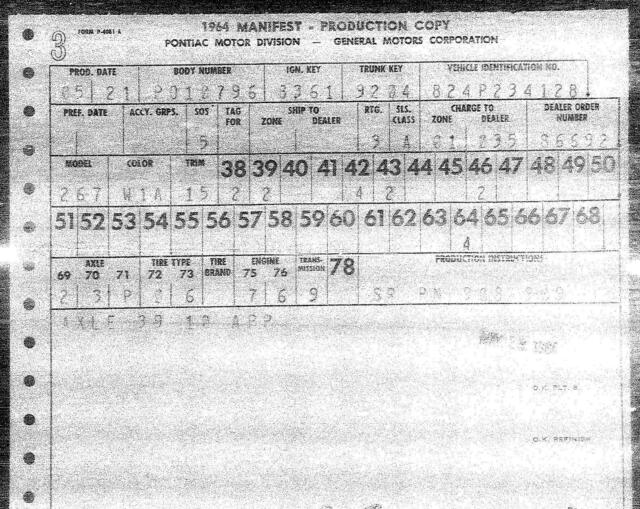 3 FORM P-4081 A
1964 MANIFEST - PRODUCTION COPY
PONTIAC MOTOR DIVISION — GENERAL MOTORS CORPORATION
PROD. DATE BODY NUMBER IGN. KEY TRUNK KEY VEHICLE IDENTIFICATION NO.
05 21 9204 824P234128
PREF. DATE ACCY. GRPS. SOS TAG FOR SHIP TO ZONE DEALER RTG. SLS. CLASS CHARGE TO ZONE DEALER DEALER ORDER NUMBER
5 3 A 01 235
MODEL COLOR TRIM 38 39 40 41 42 43 44 45 46 47 48 49 50
267 W1A 15 2 2 4 2 2
51 52 53 54 55 56 57 58 59 60 61 62 63 64 65 66 67 68
4
AXLE TIRE TYPE TIRE BRAND ENGINE TRANSMISSION 78 PRODUCTION INSTRUCTIONS
69 70 71 72 73 75 76
2 3 P 2 6 7 6 9 SR PN
AXLE 39 1P APP
O.K. PLT. 8
O.K. REFINISH